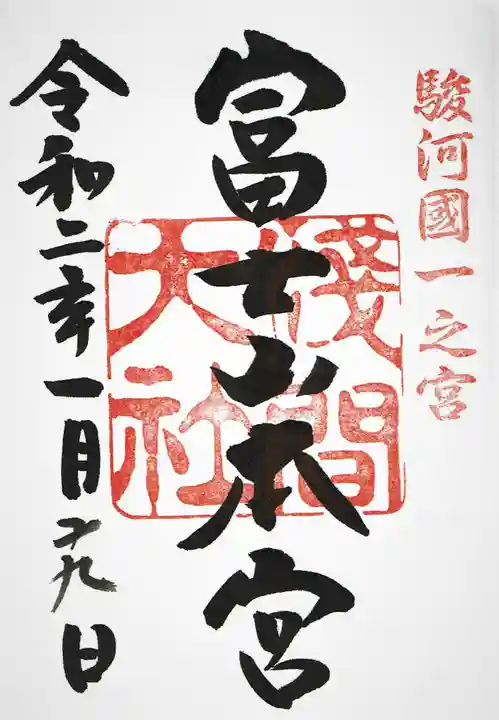 駿河國一之宮
富士山本宮
淺間
大社
令和二年一月廿九日